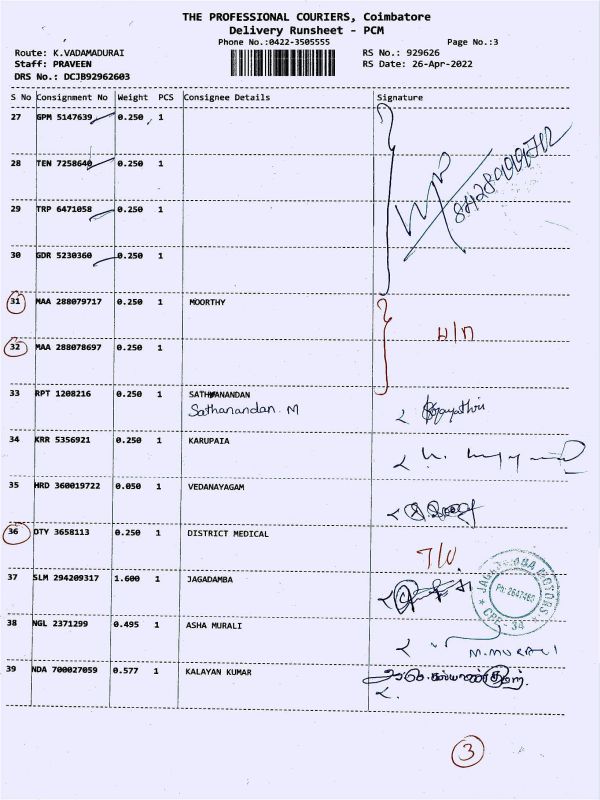 THE PROFESSIONAL COURIERS, Coimbatore
Delivery Runsheet - PCM
Phone No.:0422-3505555 Page No.:3
Route: K.VADAMADURAI RS No.: 929626
Staff: PRAVEEN RS Date: 26-Apr-2022
DRS No.: DCJB92962603
S No Consignment No Weight PCS Consignee Details Signature
27 GPM 5147639 0.250 1
28 TEN 7258640 0.250 1
29 TRP 6471058 0.250 1
30 GDR 5230360 0.250 1
31 MAA 288079717 0.250 1 MOORTHY
32 MAA 288078697 0.250 1
33 RPT 1208216 0.250 1 SATHYANANDAN
Sathanandan. M
34 KRR 5356921 0.250 1 KARUPAIA
35 HRD 360019722 0.050 1 VEDANAYAGAM
36 DTY 3658113 0.250 1 DISTRICT MEDICAL
37 SLM 294209317 1.600 1 JAGADAMBA
JAGADAMBA MOTORS
Ph: 2647460
CBE - 34
38 NGL 2371299 0.495 1 ASHA MURALI
M.MURALI
39 NDA 700027059 0.577 1 KALAYAN KUMAR
3